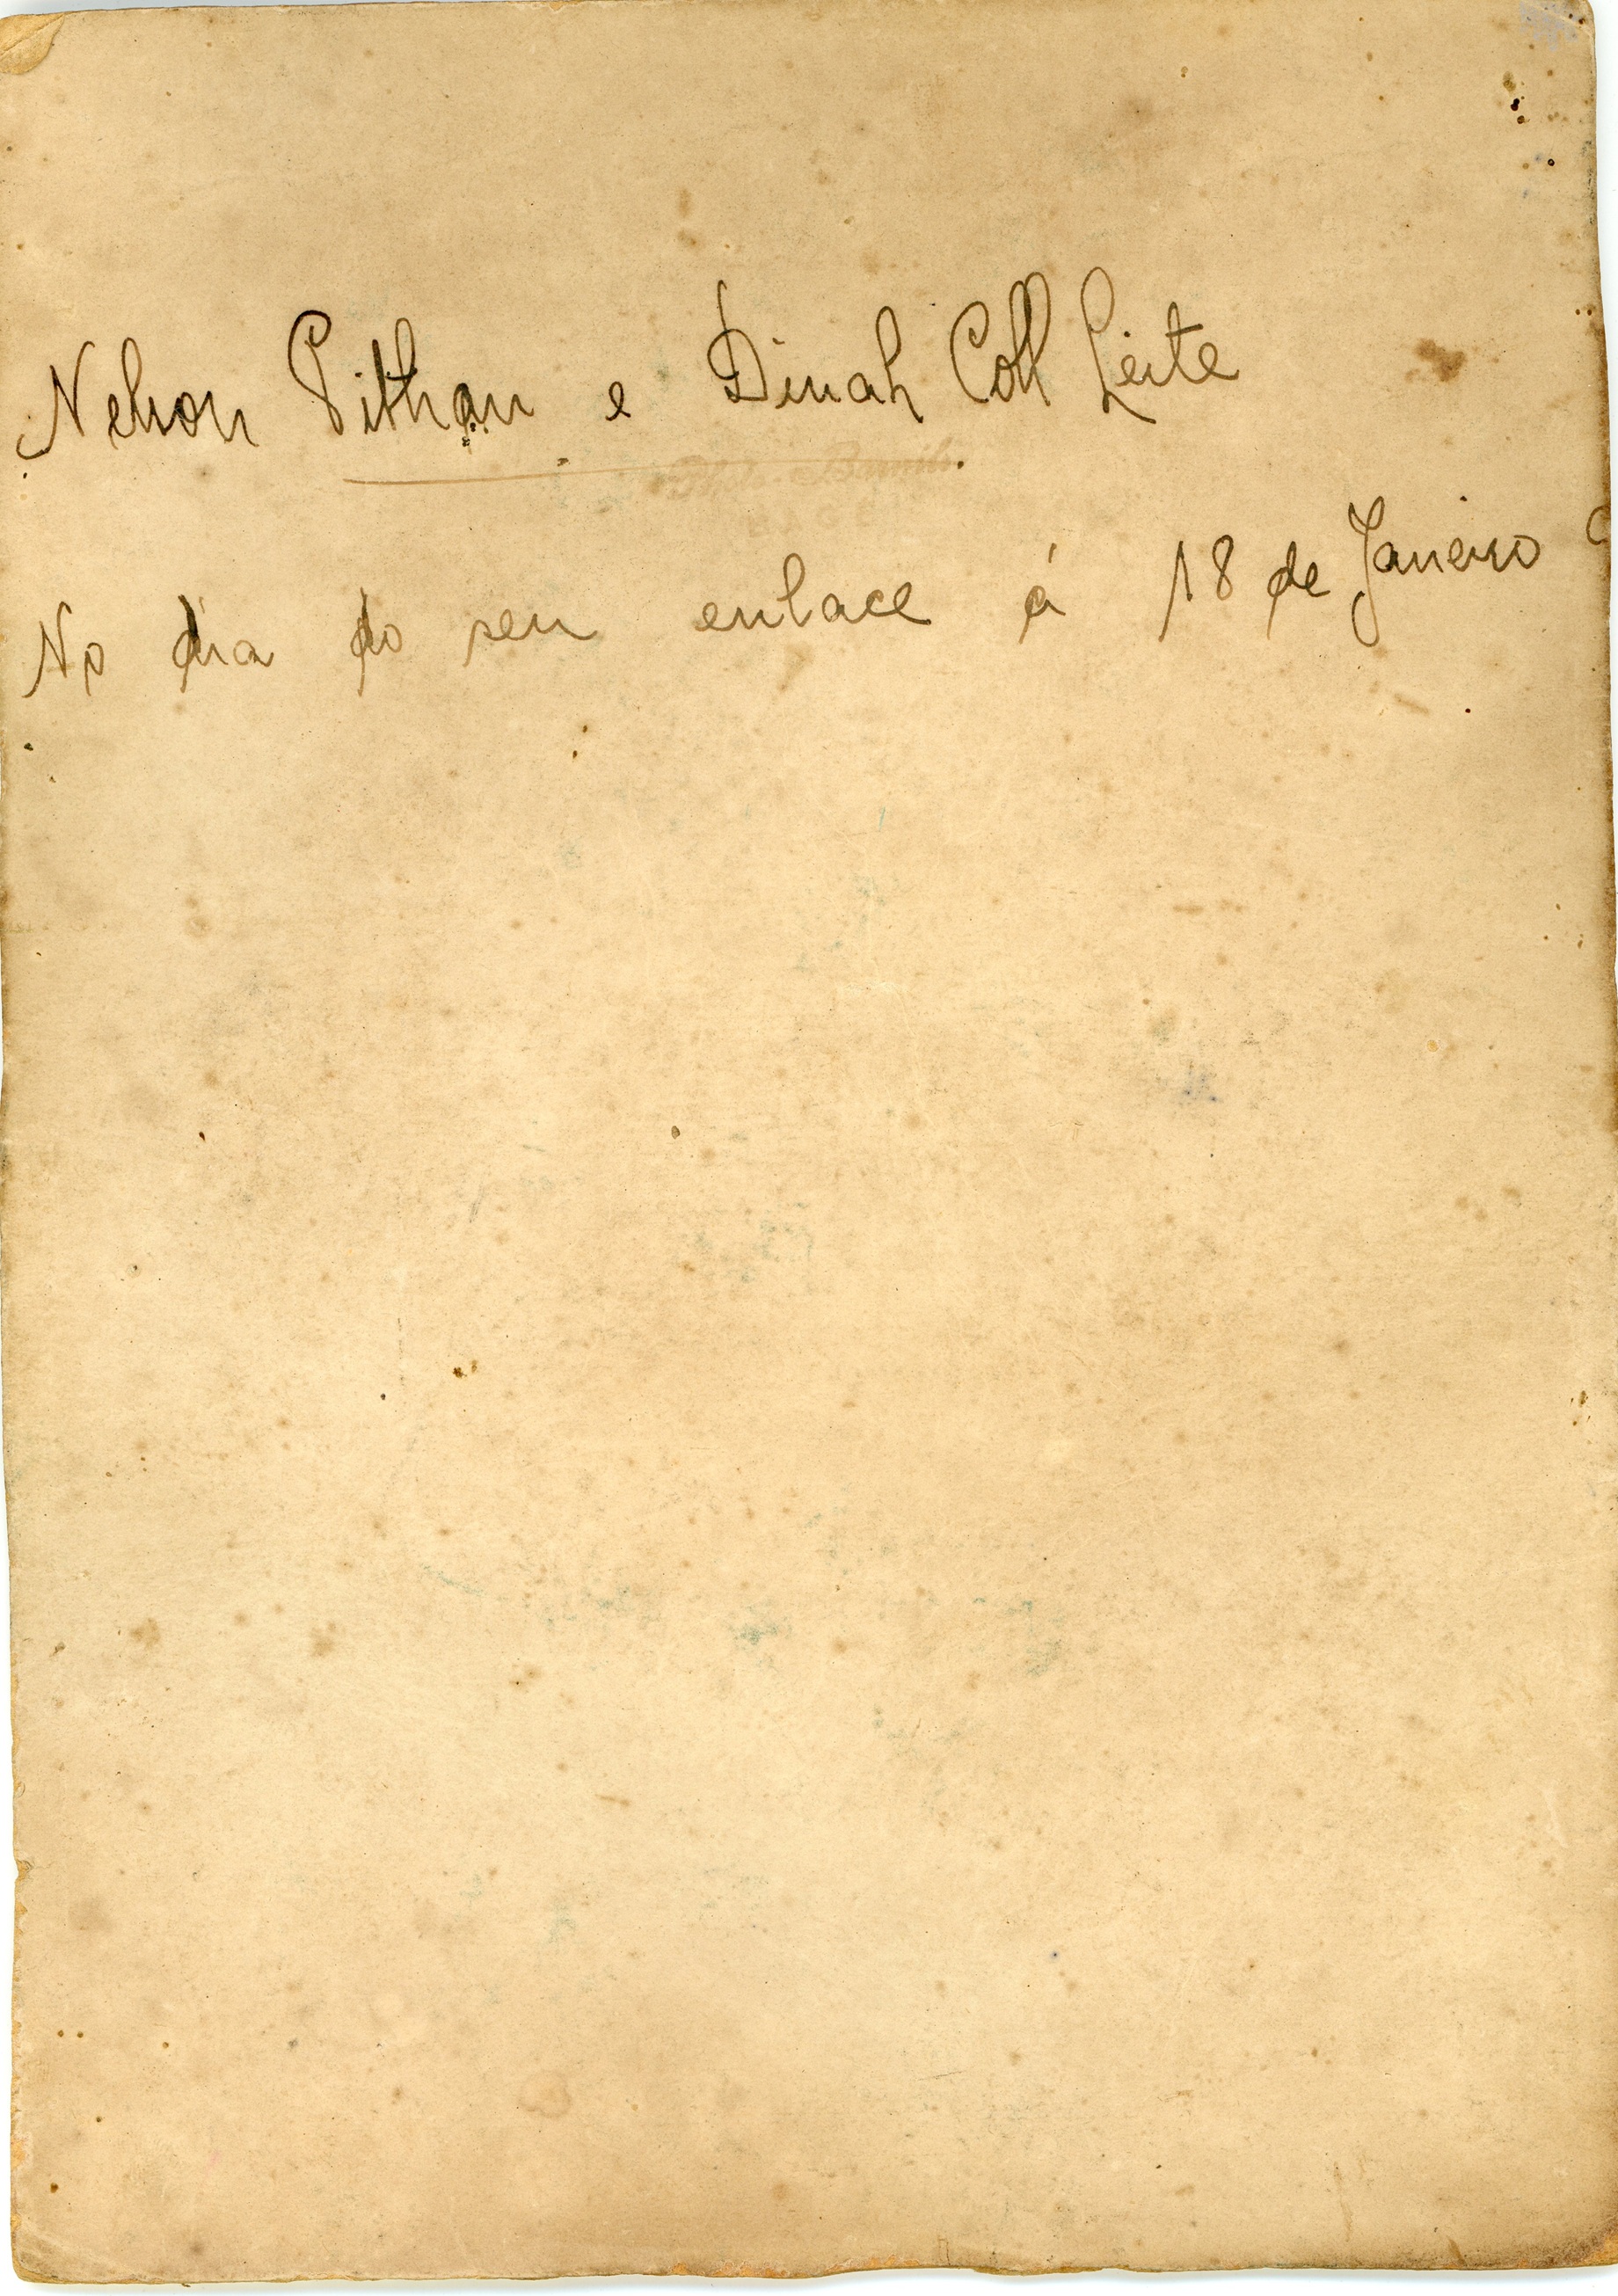 Nelson Pithan e Dinah Coll Leite
Photo Barnils.
BAGÉ
No dia do seu enlace á 18 de Janeiro